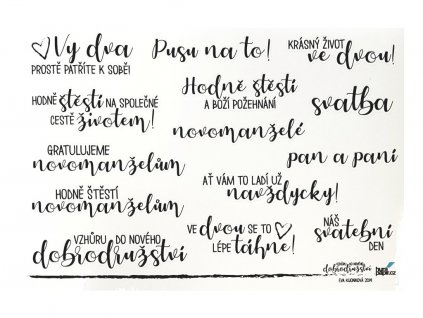 Vy dva
PROSTĚ PATŘÍTE K SOBĚ!
Pusu na to!
KRÁSNÝ ŽIVOT
ve dvou!
HODNĚ štěstí NA SPOLEČNÉ
CESTĚ životem!
Hodně štěstí
A BOŽÍ POŽEHNÁNÍ
svatba
novomanželé
GRATULUJEME
novomanželům
pan a paní
HODNĚ ŠTĚSTÍ
novomanželům
AŤ VÁM TO LADÍ UŽ
navždycky!
VZHŮRU DO NOVÉHO
dobrodružství
VE dvou SE TO
LÉPE táhne!
NÁŠ
svatební
DEN
dobrodružství
EVA KLIONKOVÁ 2019